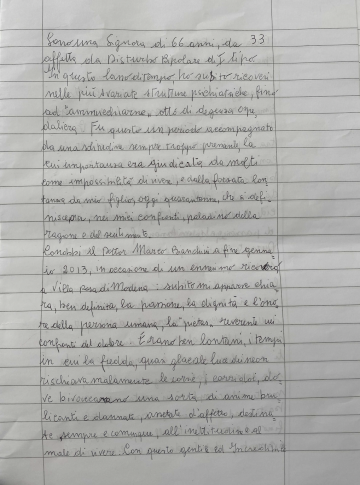 Sono una Signora di 66 anni, da 33
affetta da Disturbo Bipolare di I tipo
In questo lasso di tempo, ho subito ricoveri
nelle più svariate strutture psichiatriche, fino
ad otto di degenza ospe
daliera. Fu questo un periodo accompagnato
da una solitudine sempre troppo presente, la
cui importanza era giudicata da molti
come impossibilità di vivere, e dalla forzata lon
tananza da mio figlio, oggi quarantenne, che si defi
nisce nei miei confronti, paladino della
ragione e del sentimento.
Conobbi il Dottor Marco a fine genna
io 2013, in occasione di un ennesimo ricovero
a Villa Rosa di Modena: subito mi apparve chia
ra, ben definita, la passione, la dignità e l'ono
re della persona umana, la "pietas" reverente nei
confronti del dolore. Erano ben lontani i tempi
in cui la fredda, quasi glaciale luce dei neon
rischiarava malamente le corsie, i corridoi, do
ve bivaccavano una sorta di anime bru
licanti e dannate, assetate d'affetto, destina
te sempre e comunque, all'institudine e al
male di vivere. Con questo gentile ed